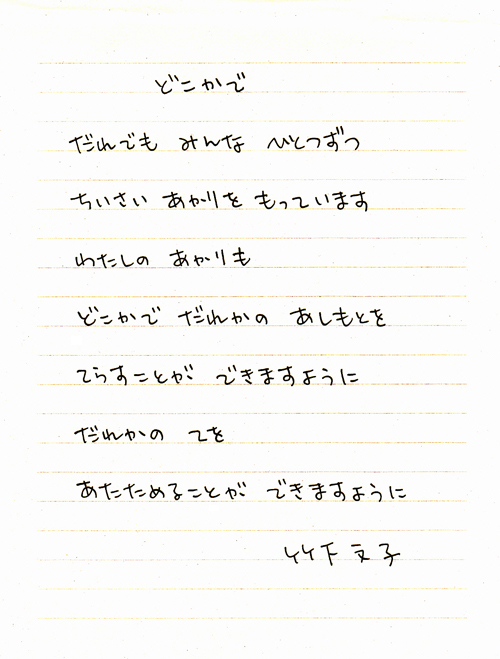 どこかで
だれでも みんな ひとつずつ
ちいさい あかりを もっています
わたしの あかりも
どこかで だれかの あしもとを
てらすことが できますように
だれかの てを
あたためることが できますように
竹下文子